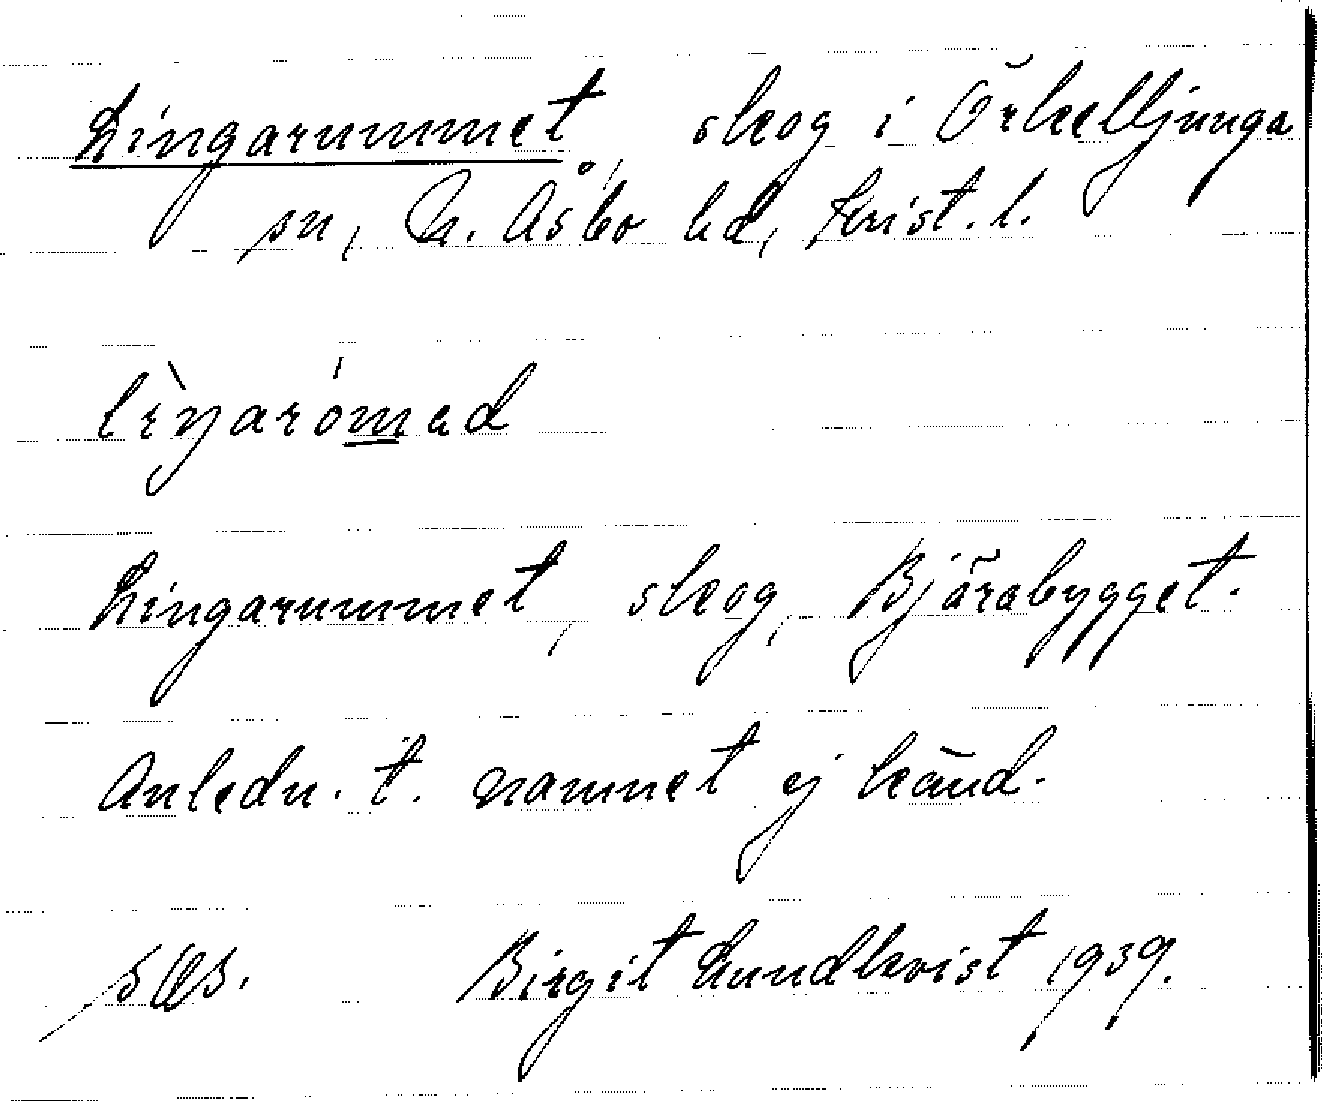 Lingarummet, skog i Örkelljunga
sn, N. Åsbo hd, Krist. l.
lìŋarómad
Lingarummet, skog, Bjärabygget.
Anledn. t. namnet ej känd.
Birgit Lundkvist 1939.